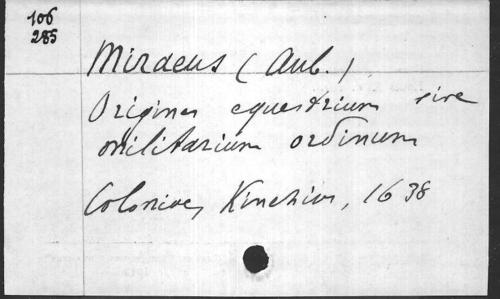 106
285
Miraeus (Aub.)
Origines equestrium sive
militarium ordinum
Coloniae, Kinchius, 1638